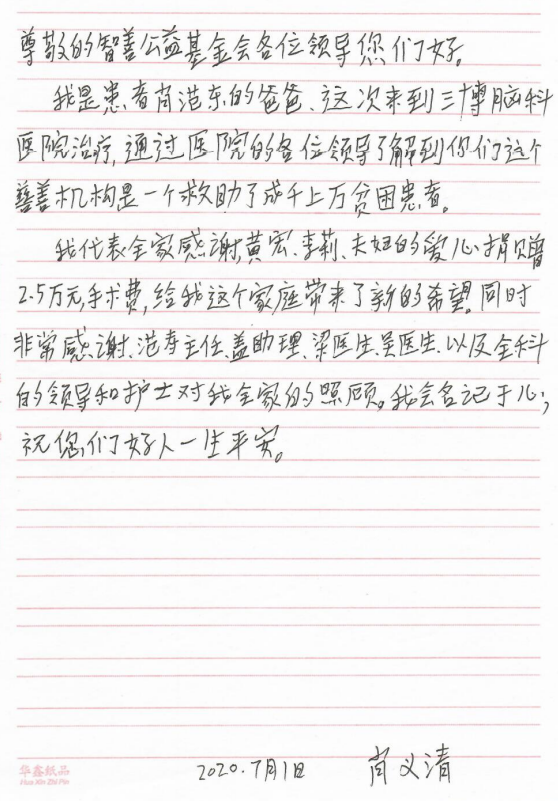 尊敬的智善公益基金会各位领导您们好。
我是患者肖浩东的爸爸、这次来到三博脑科
医院治疗,通过医院的各位领导了解到你们这个
慈善机构是一个救助了成千上万贫困患者。
我代表全家感谢,黄宏、李莉、夫妇的爱心捐赠
2.5万元,手术费,给我这个家庭带来了新的希望。同时
非常感谢、范寿主任、盖助理、梁医生吴医生、以及全科
的领导和护士对我全家的照顾。我会名记于心,
祝您们好人一生平安。
2020.7月1日 肖义清
华鑫纸品
Hua Xin Zhi Pin